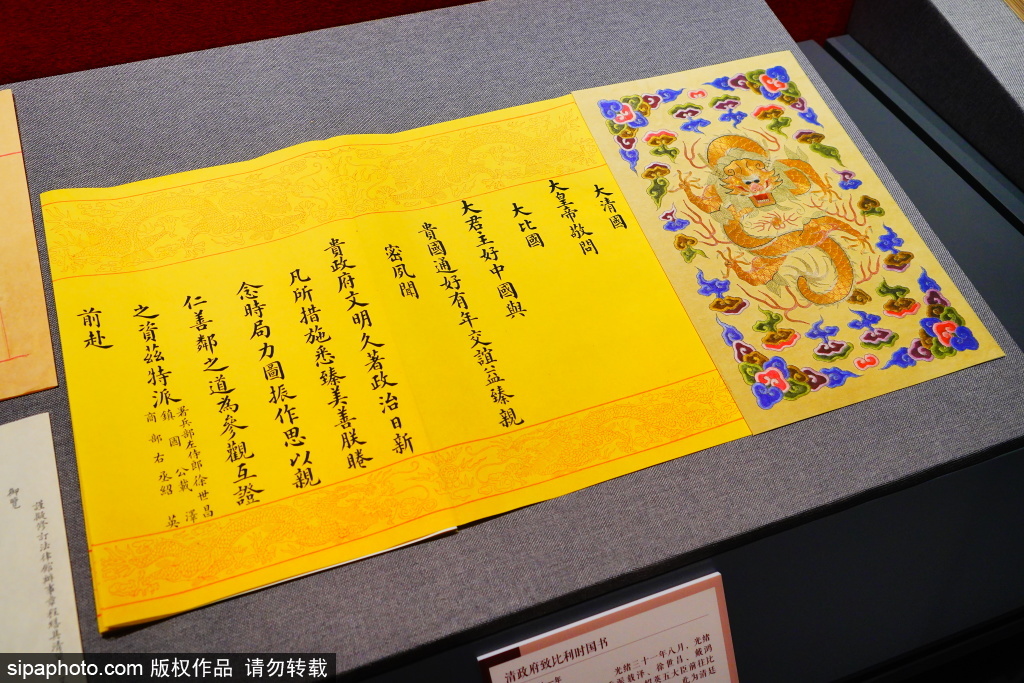 大清國
大皇帝敬問
大比國
大君主好中國與
貴國通好有年交誼益臻親
密夙聞
貴政府文明久著政治日新
凡所措施悉臻美善朕睠
念時局力圖振作思以親
仁善鄰之道為參觀互證
之資茲特派
鎮國公載澤
署兵部左侍郎徐世昌
商部右丞紹英
前赴
御覽
謹擬修訂法律館辦事章程繕具清
清政府致比利时国书
光绪三十一年八月，光绪
派载泽、徐世昌、戴鸿
绍英五大臣前往比
此为清廷
sipaphoto.com 版权作品 请勿转载